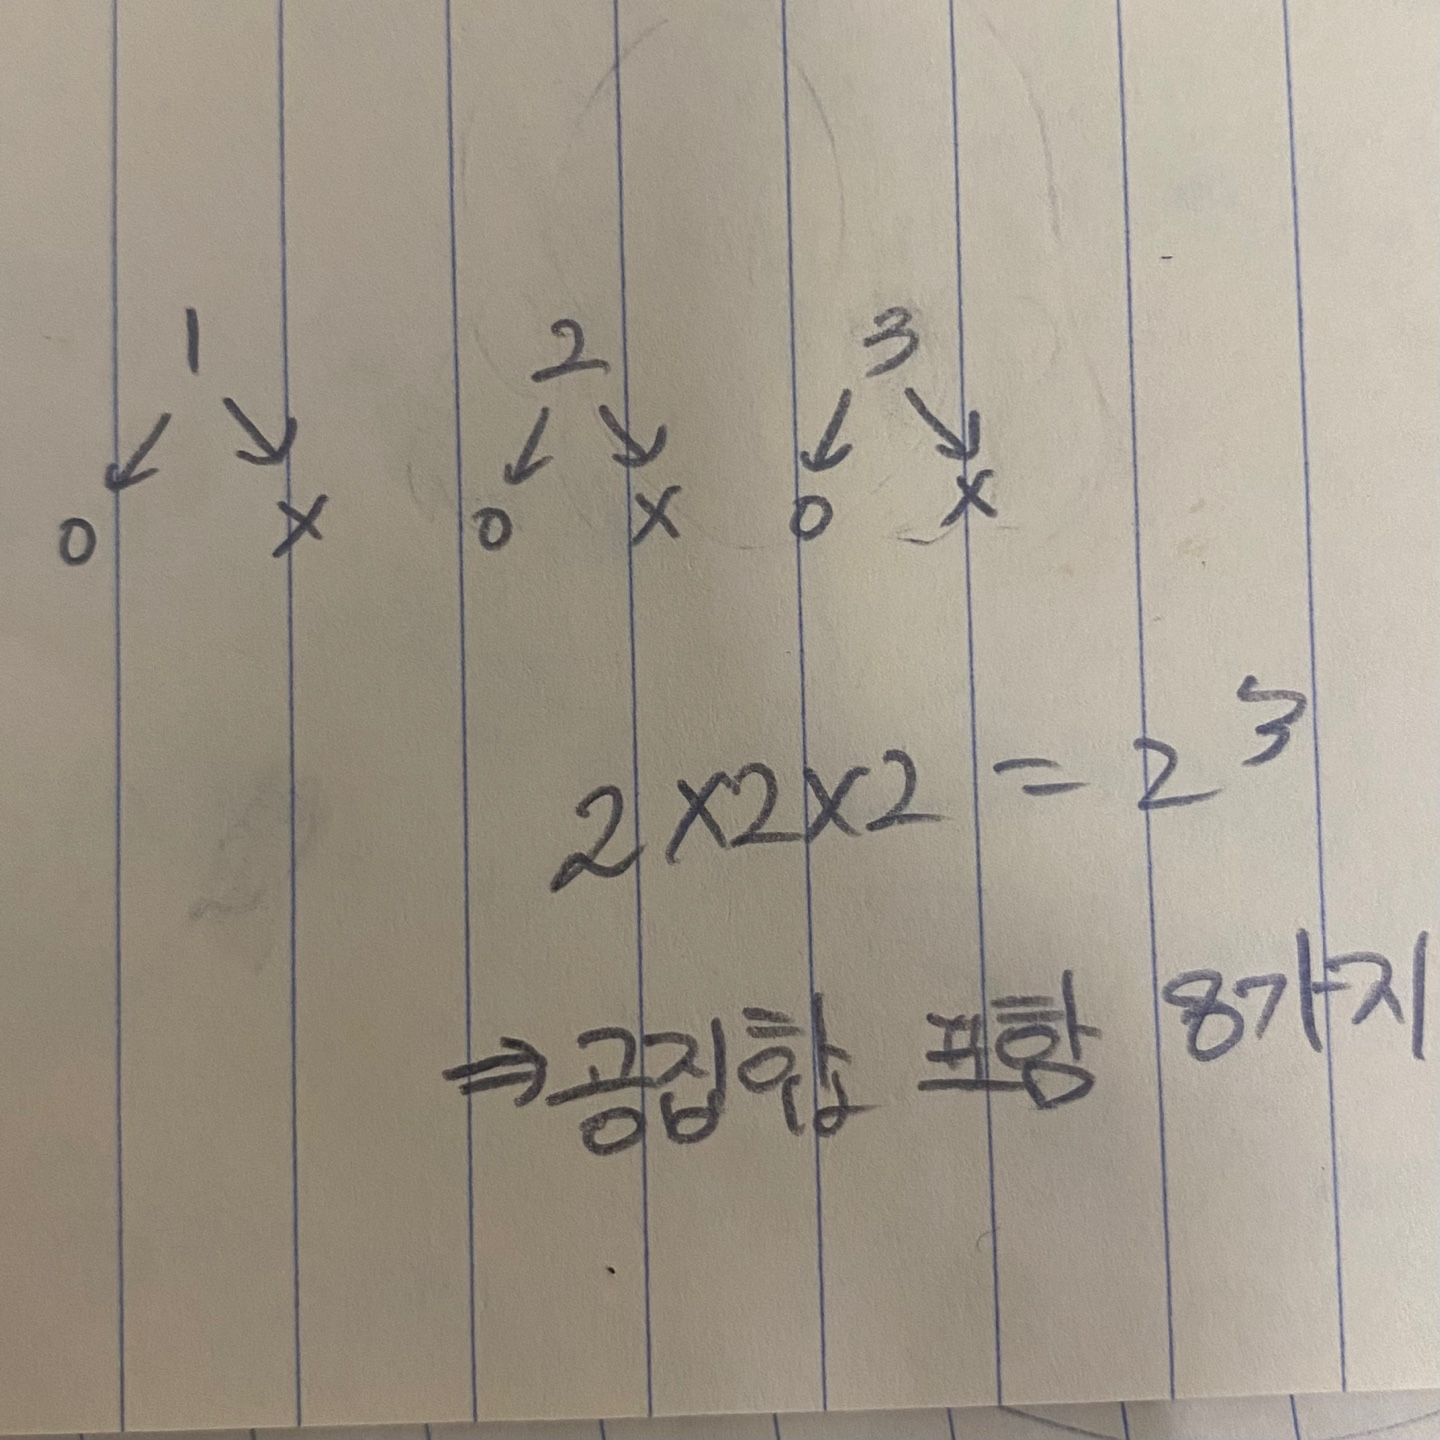 1 2 3
↙ ↘ ↙ ↘ ↙ ↘
O X O X O X
2×2×2 = 2³
⇒공집합 포함 8가지